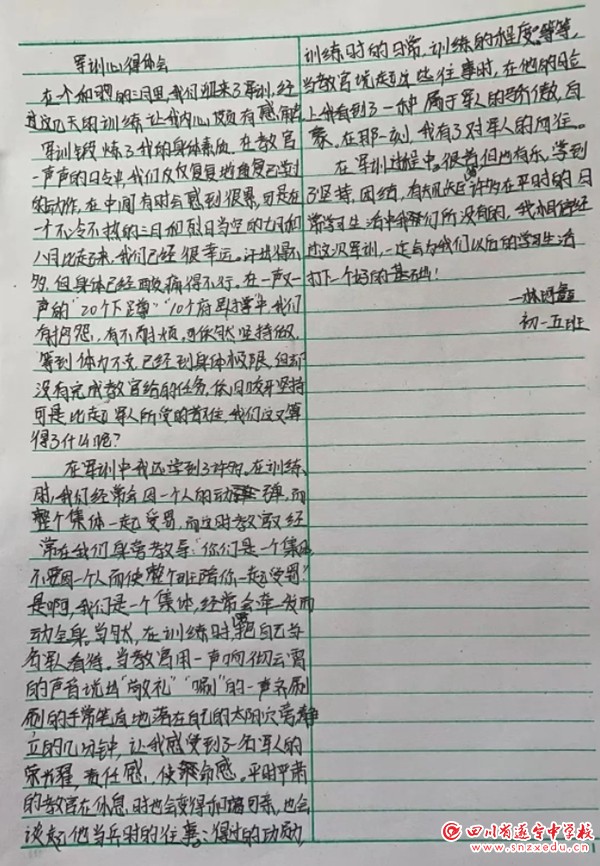 军训心得体会
在个和煦的三月里,我们迎来了军训,经
过这几天的训练,让我内心颇有感触
军训锻炼了我的身体素质。在教官
一声声的口令中,我们反反复复地重复已学过
的动作,在中间有时会感到很累,可是在
一个不冷不热的三月和烈日当空的七月和
八月比起来,我们已经很幸运。汗出得不
多,但身体已经酸痛得不行。在一声又一
声的“20个下蹲”“10个俯卧撑”中,我们
有抱怨,有不耐烦,可依然坚持做,
等到体力不支,已经到身体极限,但却
没有完成教官给的任务,依旧咬牙坚持
可是比起军人所受的,我们这又算
得了什么呢?
在军训中我还学到了许多。在训练
时,我们经常会因一个人的动弹,而
整个集体一起受罚,而这时教官又经
常在我们身旁教导:“你们是一个集体,
不要因一个人而使整个班陪你一起受罚”
是啊,我们是一个集体,经常会牵一发而
动全身。当然,在训练时要把自己当
名军人看待。当教官用一声响彻云霄
的声音说出“敬礼”“唰”的一声齐刷
刷的手常笔直地落在自己的太阳穴旁,静
立的几分钟,让我感受到了一名军人的
荣耀,责任感,使命感。平时严肃
的教官在休息时也会变得和蔼可亲,也会
谈起他当兵时的往事:得过的功勋
训练时的日常,训练的程度等等,
当教官说起这些往事时,在他的脸
上我看到了一种属于军人的骄傲,自
豪,在那一刻,我有了对军人的向往。
在军训过程中,很苦但也有乐,学到
了坚持,团结,有许多在平时的日
常学习生活中我们所没有的,我相信经
过这次军训,一定会为我们以后的学习生活
打下一个好的基础!
初一五班
四川省遂宁中学校
www.snzxedu.cn